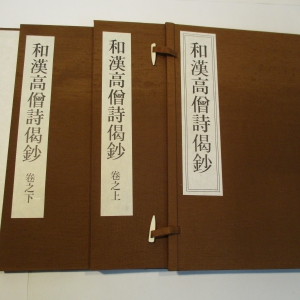 和漢高僧詩偈鈔
和漢高僧詩偈鈔
卷之上
和漢高僧詩偈鈔
卷之下